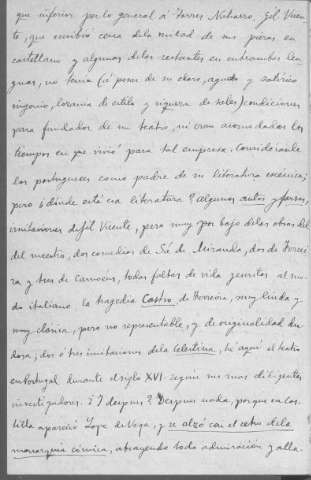 que inferior por lo general á Torres Naharro, Gil Vicen-
te, que escribió cerca de la mitad de sus piezas en
castellano y algunas de las restantes en entrambas len
guas, no tenía (á pesar de su claro, agudo y satírico
ingenio, lozanía de estilo y riqueza de sales) condiciones
para fundador de un teatro, ni eran acomodados los
tiempos en que vivió para tal empresa. Considéranle
los portugueses como padre de su literatura escénica;
pero ¿dónde está esa literatura? Algunos autos y farsas,
imitaciones de Gil Vicente, pero muy por bajo de las obras del
del maestro, dos comedias de Sá de Miranda, dos de Ferrei
ra y tres de Camoens, todas faltas de vida y escritas al mo-
do italiano la tragedia Castro, de Ferreira, muy linda y
muy clásica, pero no representable, y de originalidad du-
dosa; dos ó tres imitaciones de la Celestina, hé aquí el teatro
en Portugal durante el siglo XVI según sus más diligentes
investigadores. ¿Y despues? Despues nada, porque en Cas-
tilla apareció Lope de Vega, y se alzó con el cetro de la
monarquía cómica, atrayendo toda admiración y alla-